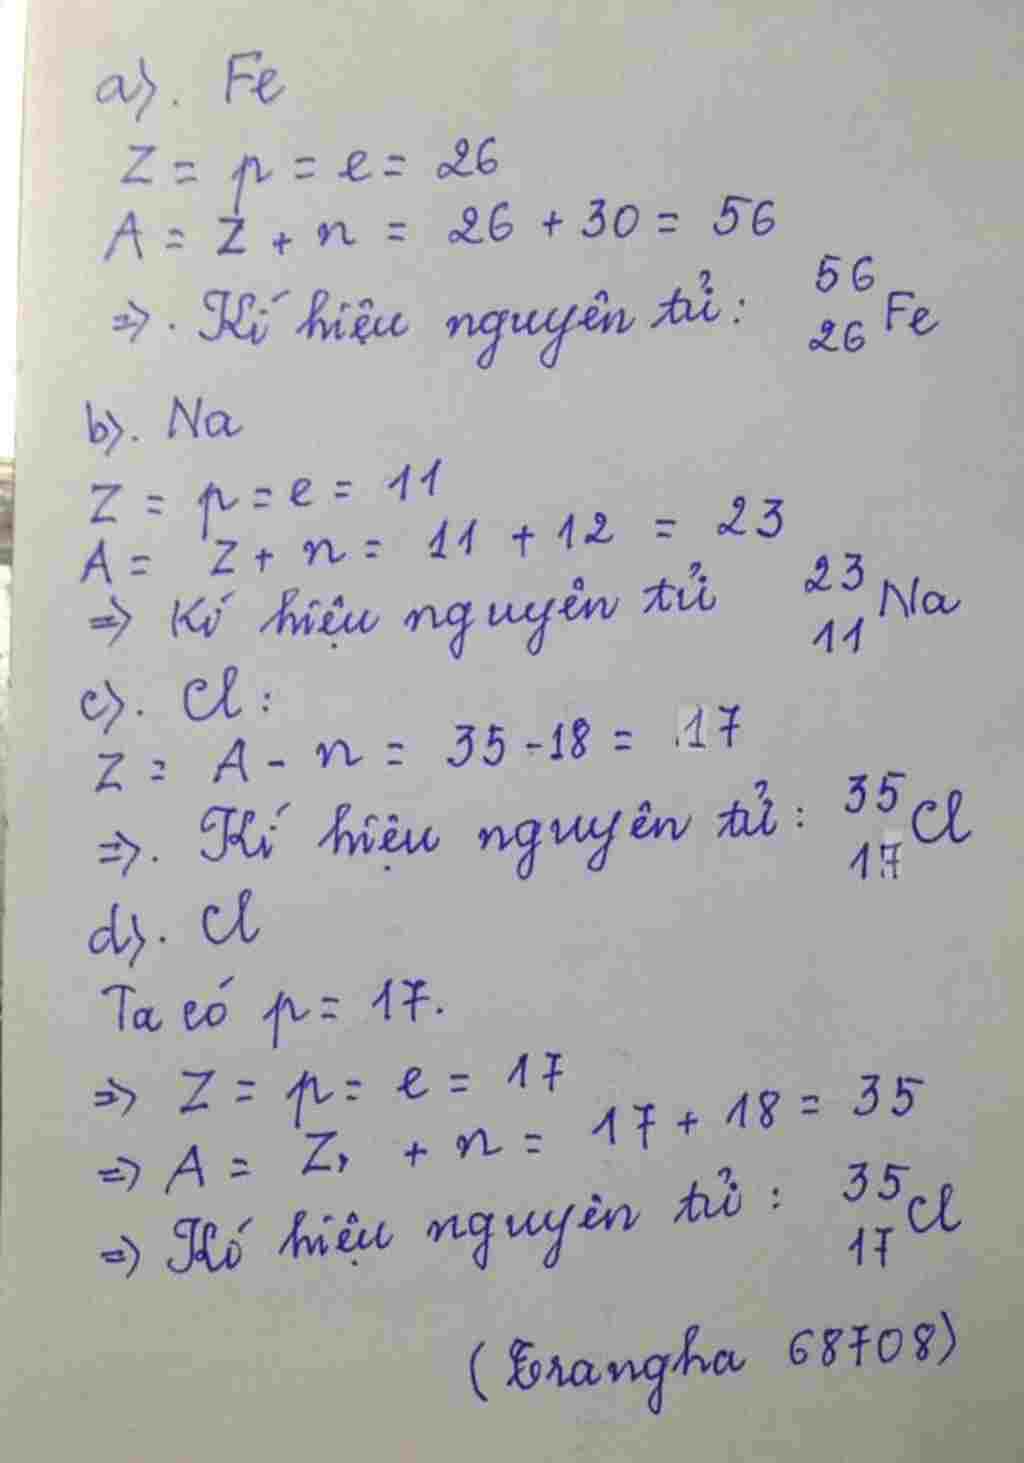 a). Fe
Z = p = e = 26
A = Z + n = 26 + 30 = 56
=>. Kí hiệu nguyên tử: ⁵⁶₂₆Fe
b). Na
Z = p = e = 11
A = Z + n = 11 + 12 = 23
=> Kí hiệu nguyên tử ²³₁₁Na
c). Cl:
Z = A - n = 35 - 18 = 17
=>. Kí hiệu nguyên tử: ³⁵₁₇Cl
d). Cl
Ta có p = 17.
=> Z = p = e = 17
=> A = Z, + n = 17 + 18 = 35
=> Kí hiệu nguyên tử: ³⁵₁₇Cl
(Trangha 68708)